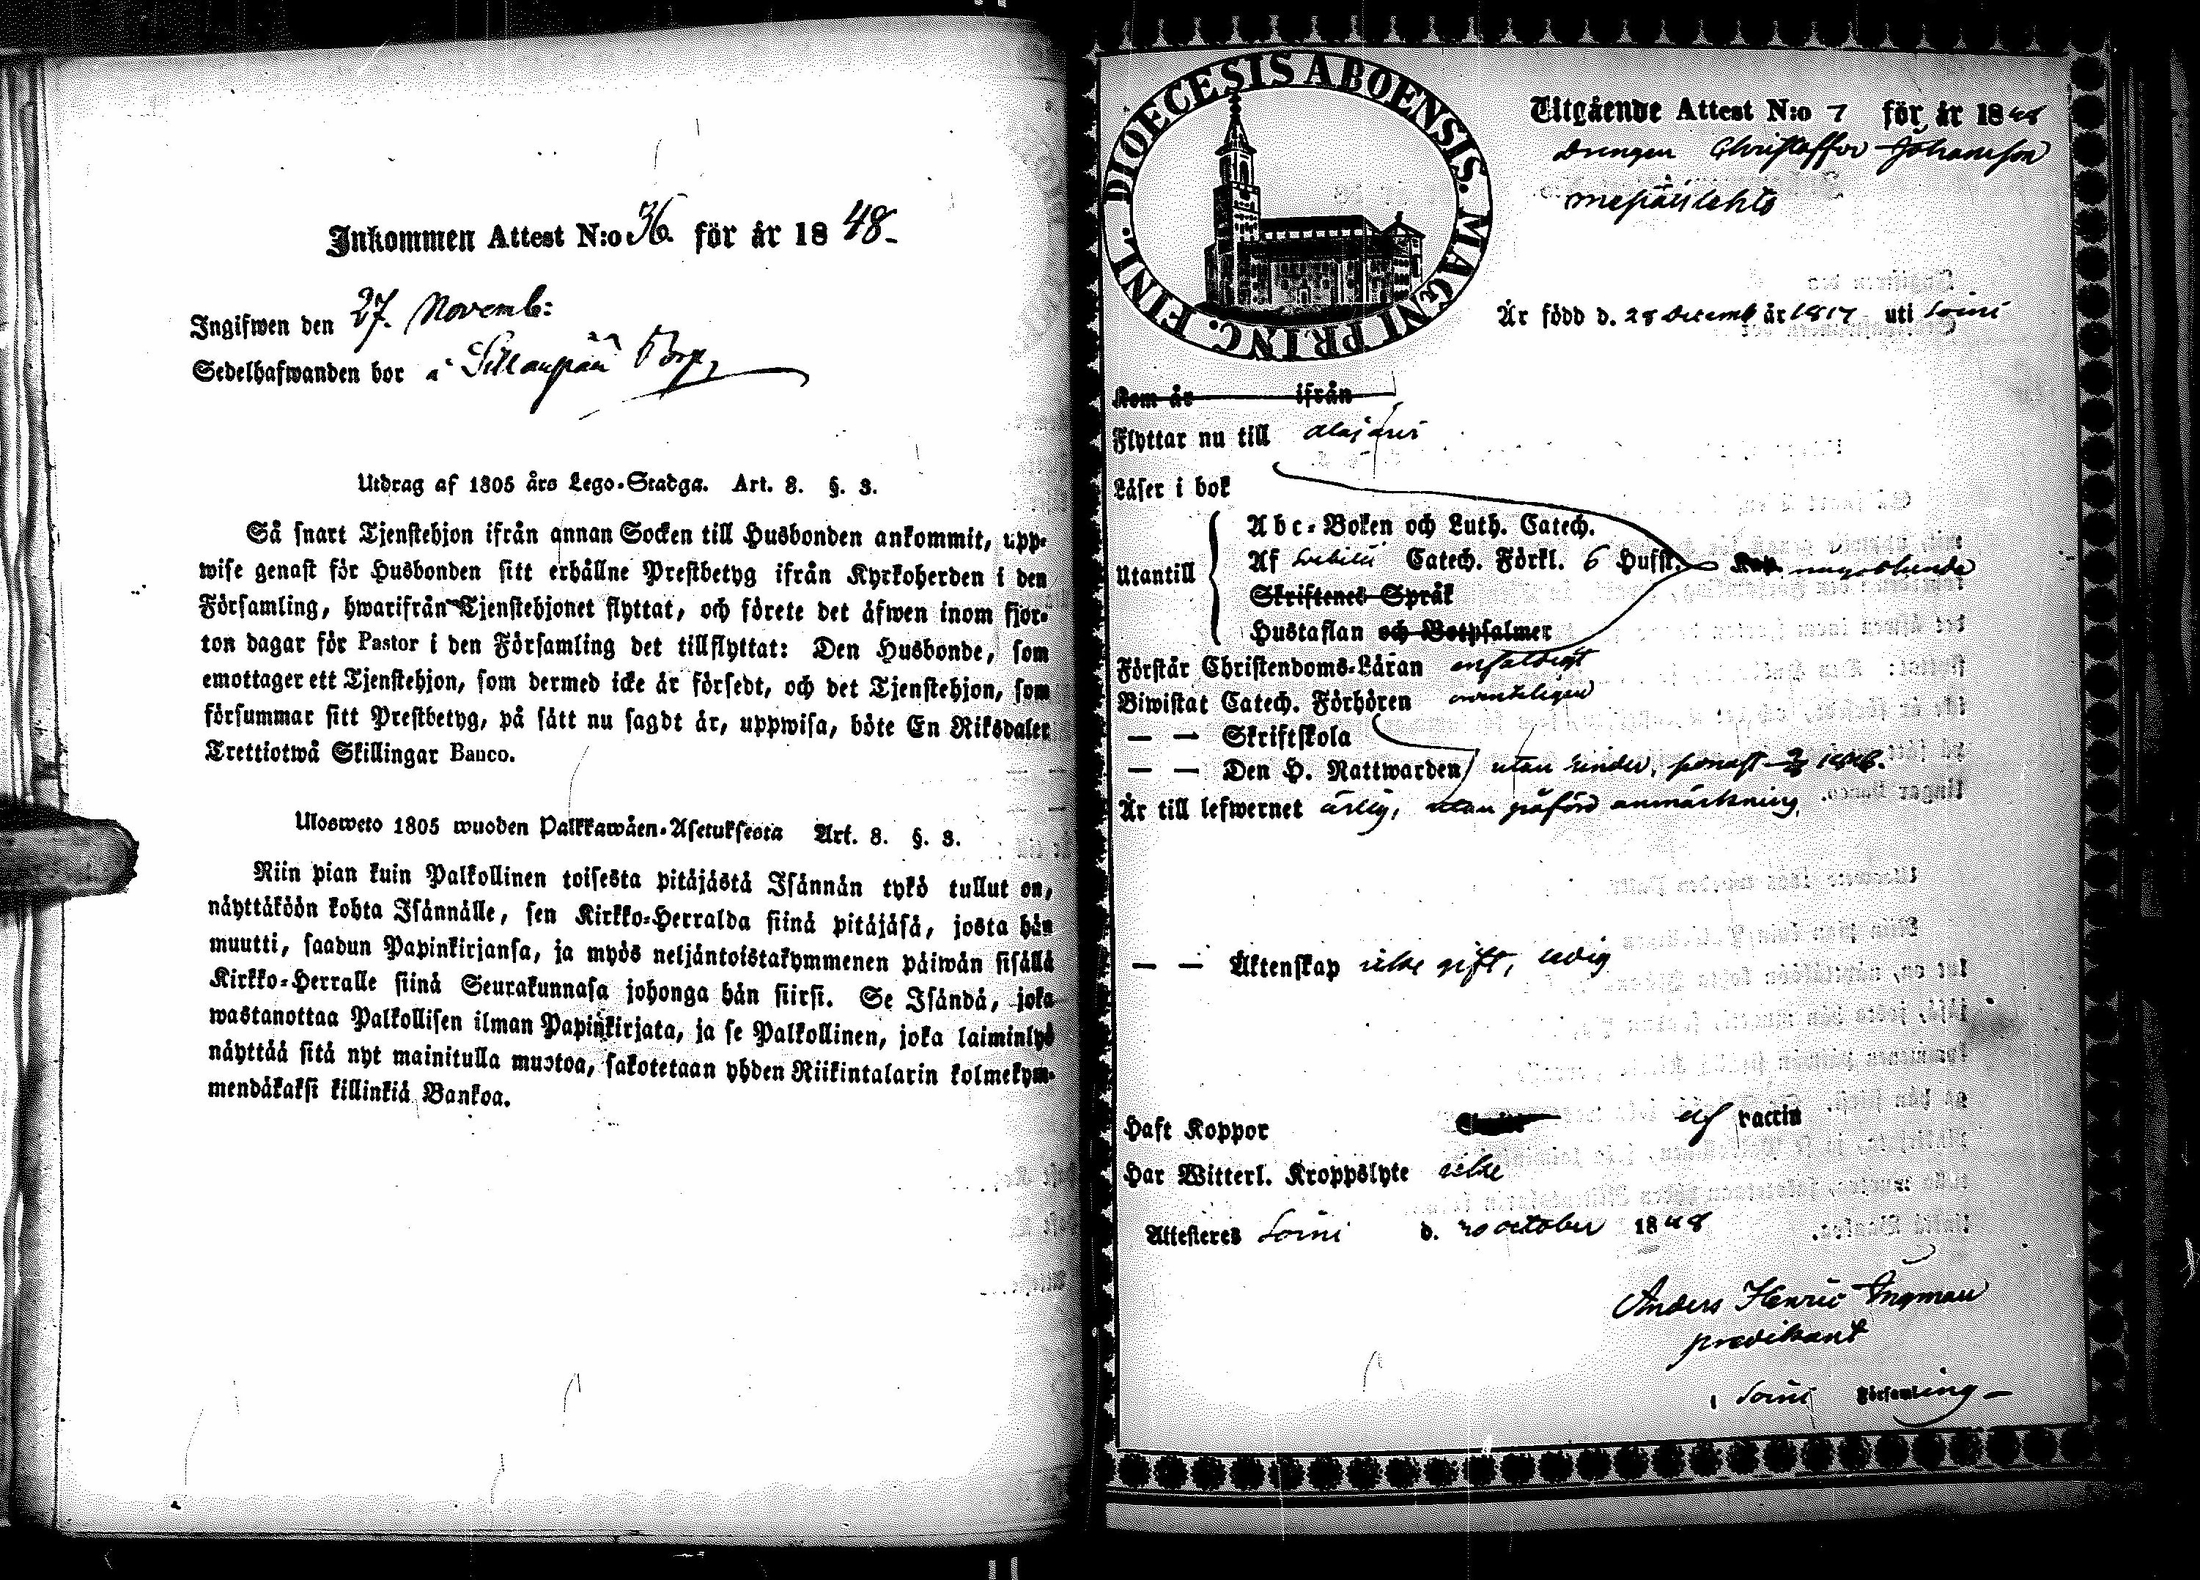 Inkommen Attest N:o 36. för år 1848-
Ingifwen den 27. Novemb:
Sedelhafwanden bor å Sillanpää Torp,
Utdrag af 1805 års Lego-Stadga. Art. 8. §. 3.
Så snart Tjenstehjon ifrån annan Socken till Husbonden ankommit, upp-
wise genast för Husbonden sitt erhållne Prestbetyg ifrån Kyrkoherden i den
Församling, hwarifrån Tjenstehjonet flyttat, och förete det äfwen inom fjor-
ton dagar för Pastor i den Församling det tillflyttat: Den Husbonde, som
emottager ett Tjenstehjon, som dermed icke är försedt, och det Tjenstehjon, som
försummar sitt Prestbetyg, på sätt nu sagdt är, uppwisa, böte En Riksdaler
Trettiotwå Skillingar Banco.
Ulosweto 1805 wuoden Palkkawäen-Asetuksesta Art. 8. §. 3.
Niin pian kuin Palkollinen toisesta pitäjästä Isännän tykö tullut on,
näyttäköön kohta Isännälle, sen Kirkko-Herralda siinä pitäjäsä, josta hän
muutti, saadun Papinkirjansa, ja myös neljäntoistakymmenen päiwän sisällä
Kirkko-Herralle siinä Seurakunnasa johonga hän siirsi. Se Isändä, joka
wastanottaa Palkollisen ilman Papinkirjata, ja se Palkollinen, joka laiminlyö
näyttää sitä nyt mainitulla muotoa, sakotetaan yhden Riikintalarin kolmekym-
mendäkaksi killinkiä Bankoa.
DIOECESIS ABOENSIS. MAGNI PRINC. FINL.
Utgående Attest N:o 7 för år 1848
Drengen Christoffer Johansson
Är född d. 28 Decemb år 1817 uti Soini
Kom år ifrån
Flyttar nu till Alajärvi
Läser i bok
Utantill
Abc-Boken och Luth. Catech.
Af Svebilii Catech. Förkl. 6 Hufst. någorlunda
Skriftenes Språk
Hustaflan och Botpsalmer
Förstår Christendoms-Läran enfaldigt
Biwistat Catech. Förhören ordentligen
— — Skriftskola
— — Den H. Nattwarden utan hinder, senast 1848.
Är till lefwernet ärlig, utan påförd anmärkning,
— — Äktenskap icke gift, ledig
Haft Koppor af vaccin
Har Witterl. Kroppslyte icke
Attesteres Soini d. 20 October 1848
Anders Henric Ingman
predikant
i Soini Församling